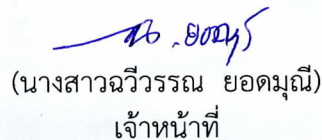 (นางสาวฉวีวรรณ ยอดมุณี)
เจ้าหน้าที่